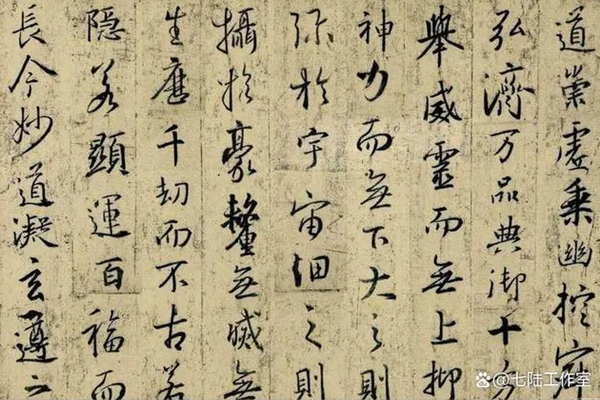 道崇虚乘幽控寂
弘濟万品典御十方
舉威靈而無上抑
神力而無下大之則
弥於宇宙細之則
攝於豪釐無滅無
生歷千劫而不古若
隐若顯運百福而
長今妙道凝玄遵之
七陆工作室